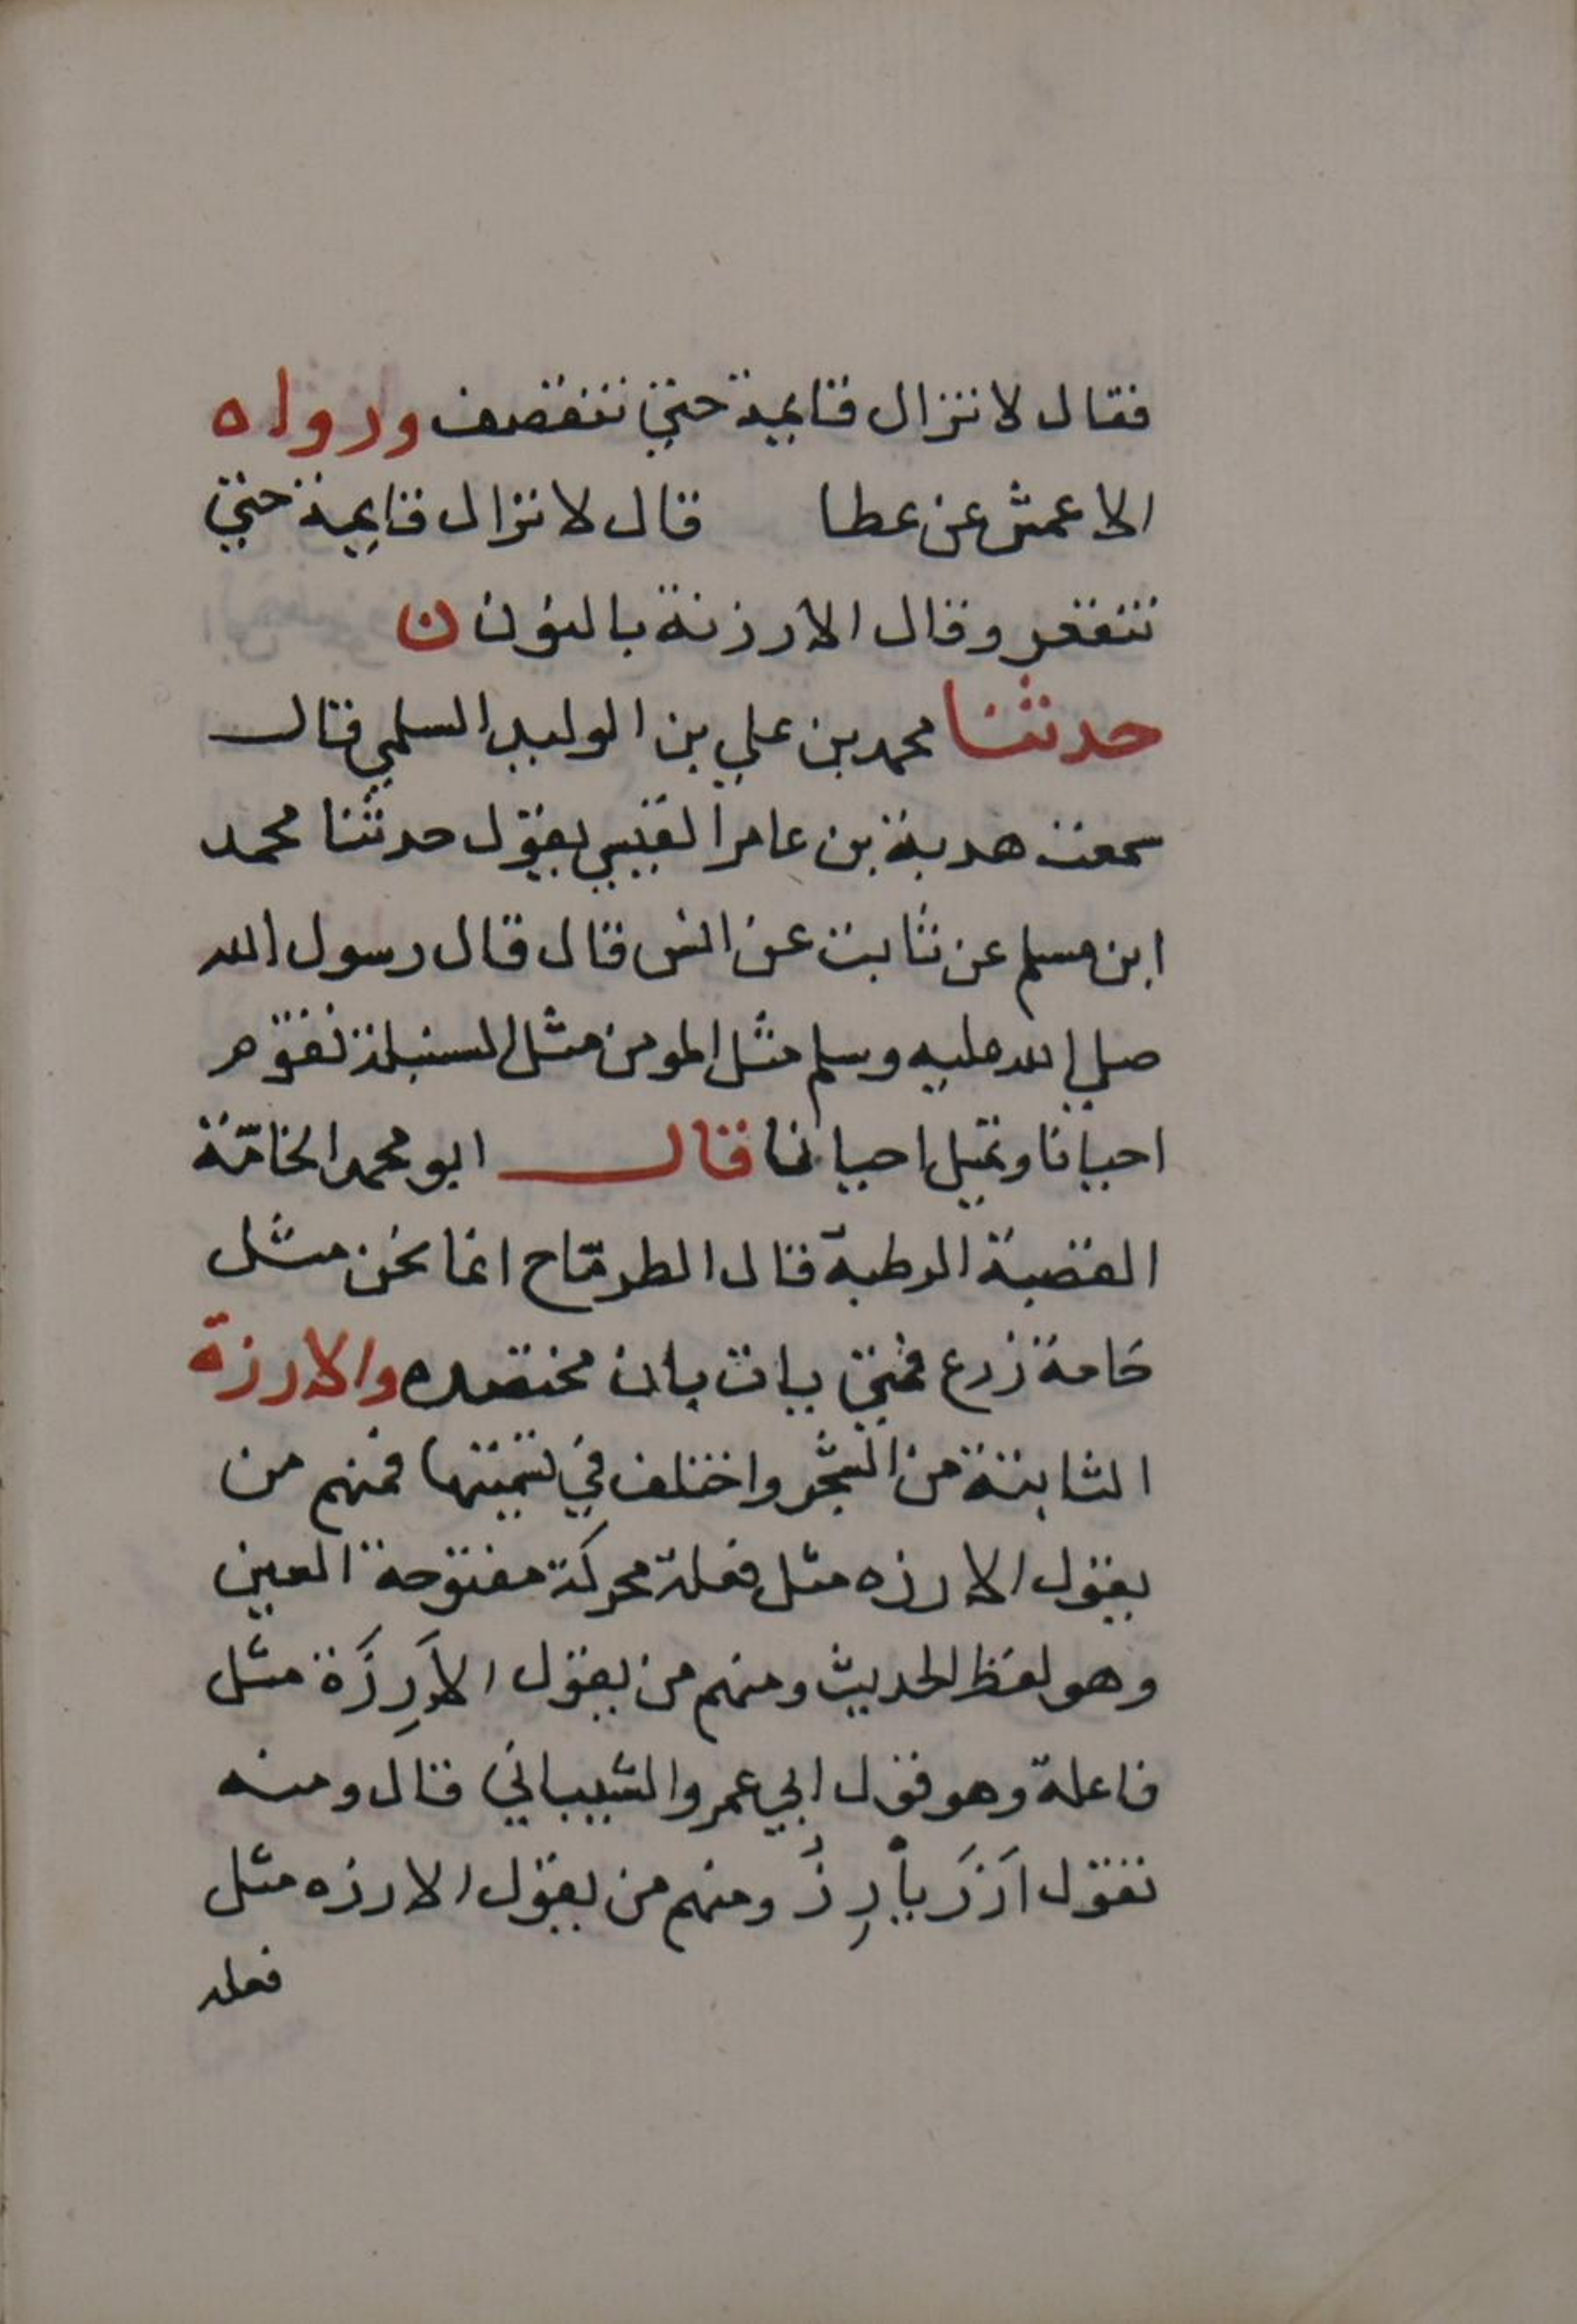 فقال لا تزال قايمة حتي تنقصف ورواه
الاعمش عن عطا قال لا تزال قايمة حتي
تنقعر وقال الارزنة بالنون ن
حدثنا محمد بن علي بن الوليد السلمي قال
سمعت هدبة بن عامر القيسي يقول حدثنا محمد
ابن مسلم عن ثابت عن انس قال قال رسول الله
صلي الله عليه وسلم مثل المومن مثل السنبلة تقوم
احيانا وتميل احيانا قال ابو محمد الخامّة
القصبة الرطبة قال الطرمّاح انما نحن مثل
خامة زرع فمتي يات يات محتصده والارزة
الثابتة من الشجر واختلف في تسميتها فمنهم من
يقول الارزه مثل فعلة محركة مفتوحة العين
وهو لفظ الحديث ومنهم من يقول الاَرِزَة مثل
فاعلة وهو قول ابي عمرو الشيباني قال ومنه
تقول اَرَزَ ياْرِزُ ومنهم من يقول الارزه مثل
فعله